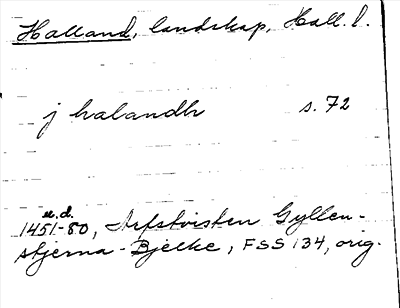 Halland, landskap, Hall. l.
j halandh s. 72
u.d.
1451-80, Arfstvisten Gyllen-
stjerna - Bjelke, FSS 134, orig.